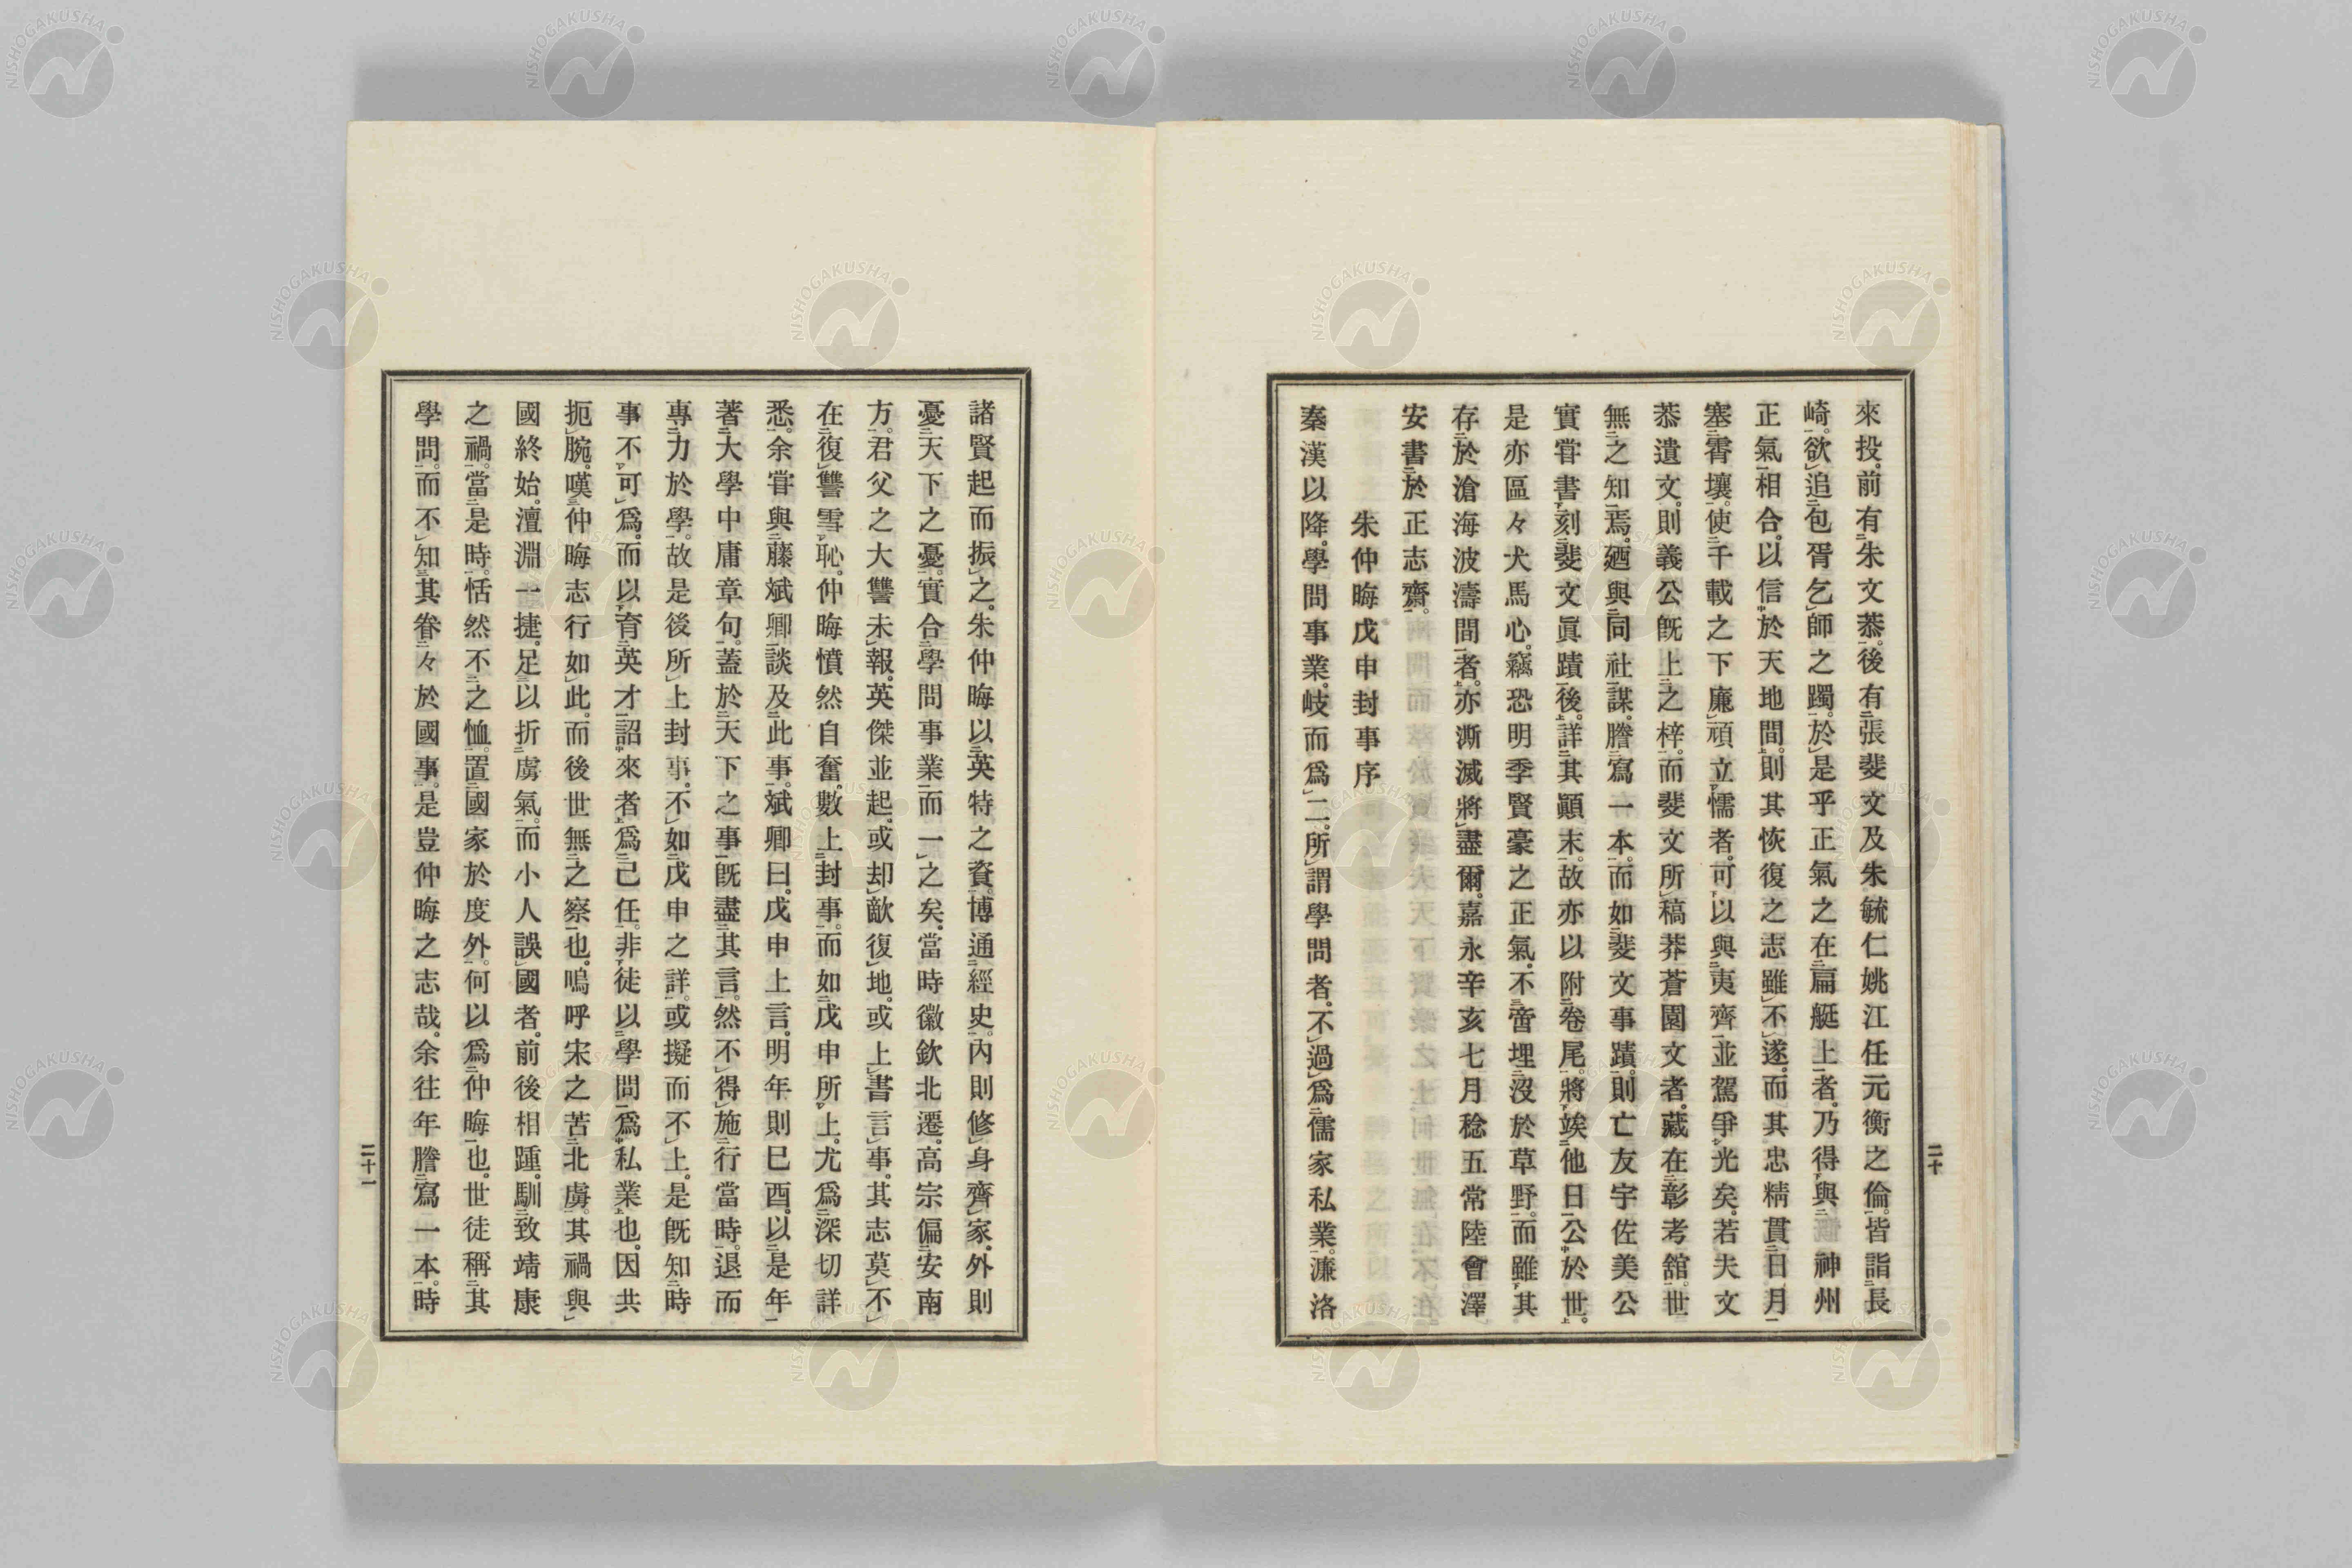 來投。前有朱文恭。後有張斐文及朱毓仁姚江任元衡之倫。皆詣長
崎。欲追包胥乞師之躅。於是乎正氣之在扁艇上者。乃得與 神州
正氣相合。以信於天地間。則其恢復之志雖不遂。而其忠精貫日月
塞霄壤。使千載之下廉頑立懦者。可以與夷齊並駕爭光矣。若夫文
恭遺文。則義公既上之梓。而斐文所稿莽蒼園文者。藏在彰考館。世
無之知焉。廼與同社謀。謄寫一本。而如斐文事蹟。則亡友宇佐美公
實嘗書刻斐文眞蹟後。詳其顚末。故亦以附卷尾。將竢他日公於世。
是亦區々犬馬心。竊恐明季賢豪之正氣。不啻埋沒於草野。而雖其
存於滄海波濤間者。亦澌滅將盡爾。嘉永辛亥七月稔五常陸會澤
安書於正志齋。
朱仲晦戊申封事序
秦漢以降。學問事業。岐而爲二。所謂學問者。不過爲儒家私業。濂洛
二十
諸賢起而振之。朱仲晦以英特之資。博通經史。內則修身齊家。外則
憂天下之憂。實合學問事業而一之矣。當時徽欽北遷。高宗偏安南
方。君父之大讐未報。英傑並起。或却敵復地。或上書言事。其志莫不
在復讐雪恥。仲晦憤然自奮。數上封事。而如戊申所上。尤爲深切詳
悉。余嘗與藤斌卿談及此事。斌卿曰。戊申上言。明年則巳酉。以是年
著大學中庸章句。蓋於天下之事既盡其言。然不得施行當時。退而
專力於學。故是後所上封事。不如戊申之詳。或擬而不上。是既知時
事不可爲。而以育英才詔來者爲己任。非徒以學問爲私業也。因共
扼腕。嘆仲晦志行如此。而後世無之察也。嗚呼宋之苦北虜。其禍與
國終始。澶淵一捷。足以折虜氣。而小人誤國者。前後相踵。馴致靖康
之禍。當是時。恬然不之恤。置國家於度外。何以爲仲晦也。世徒稱其
學問。而不知其眷々於國事。是豈仲晦之志哉。余往年謄寫一本。時
二十一